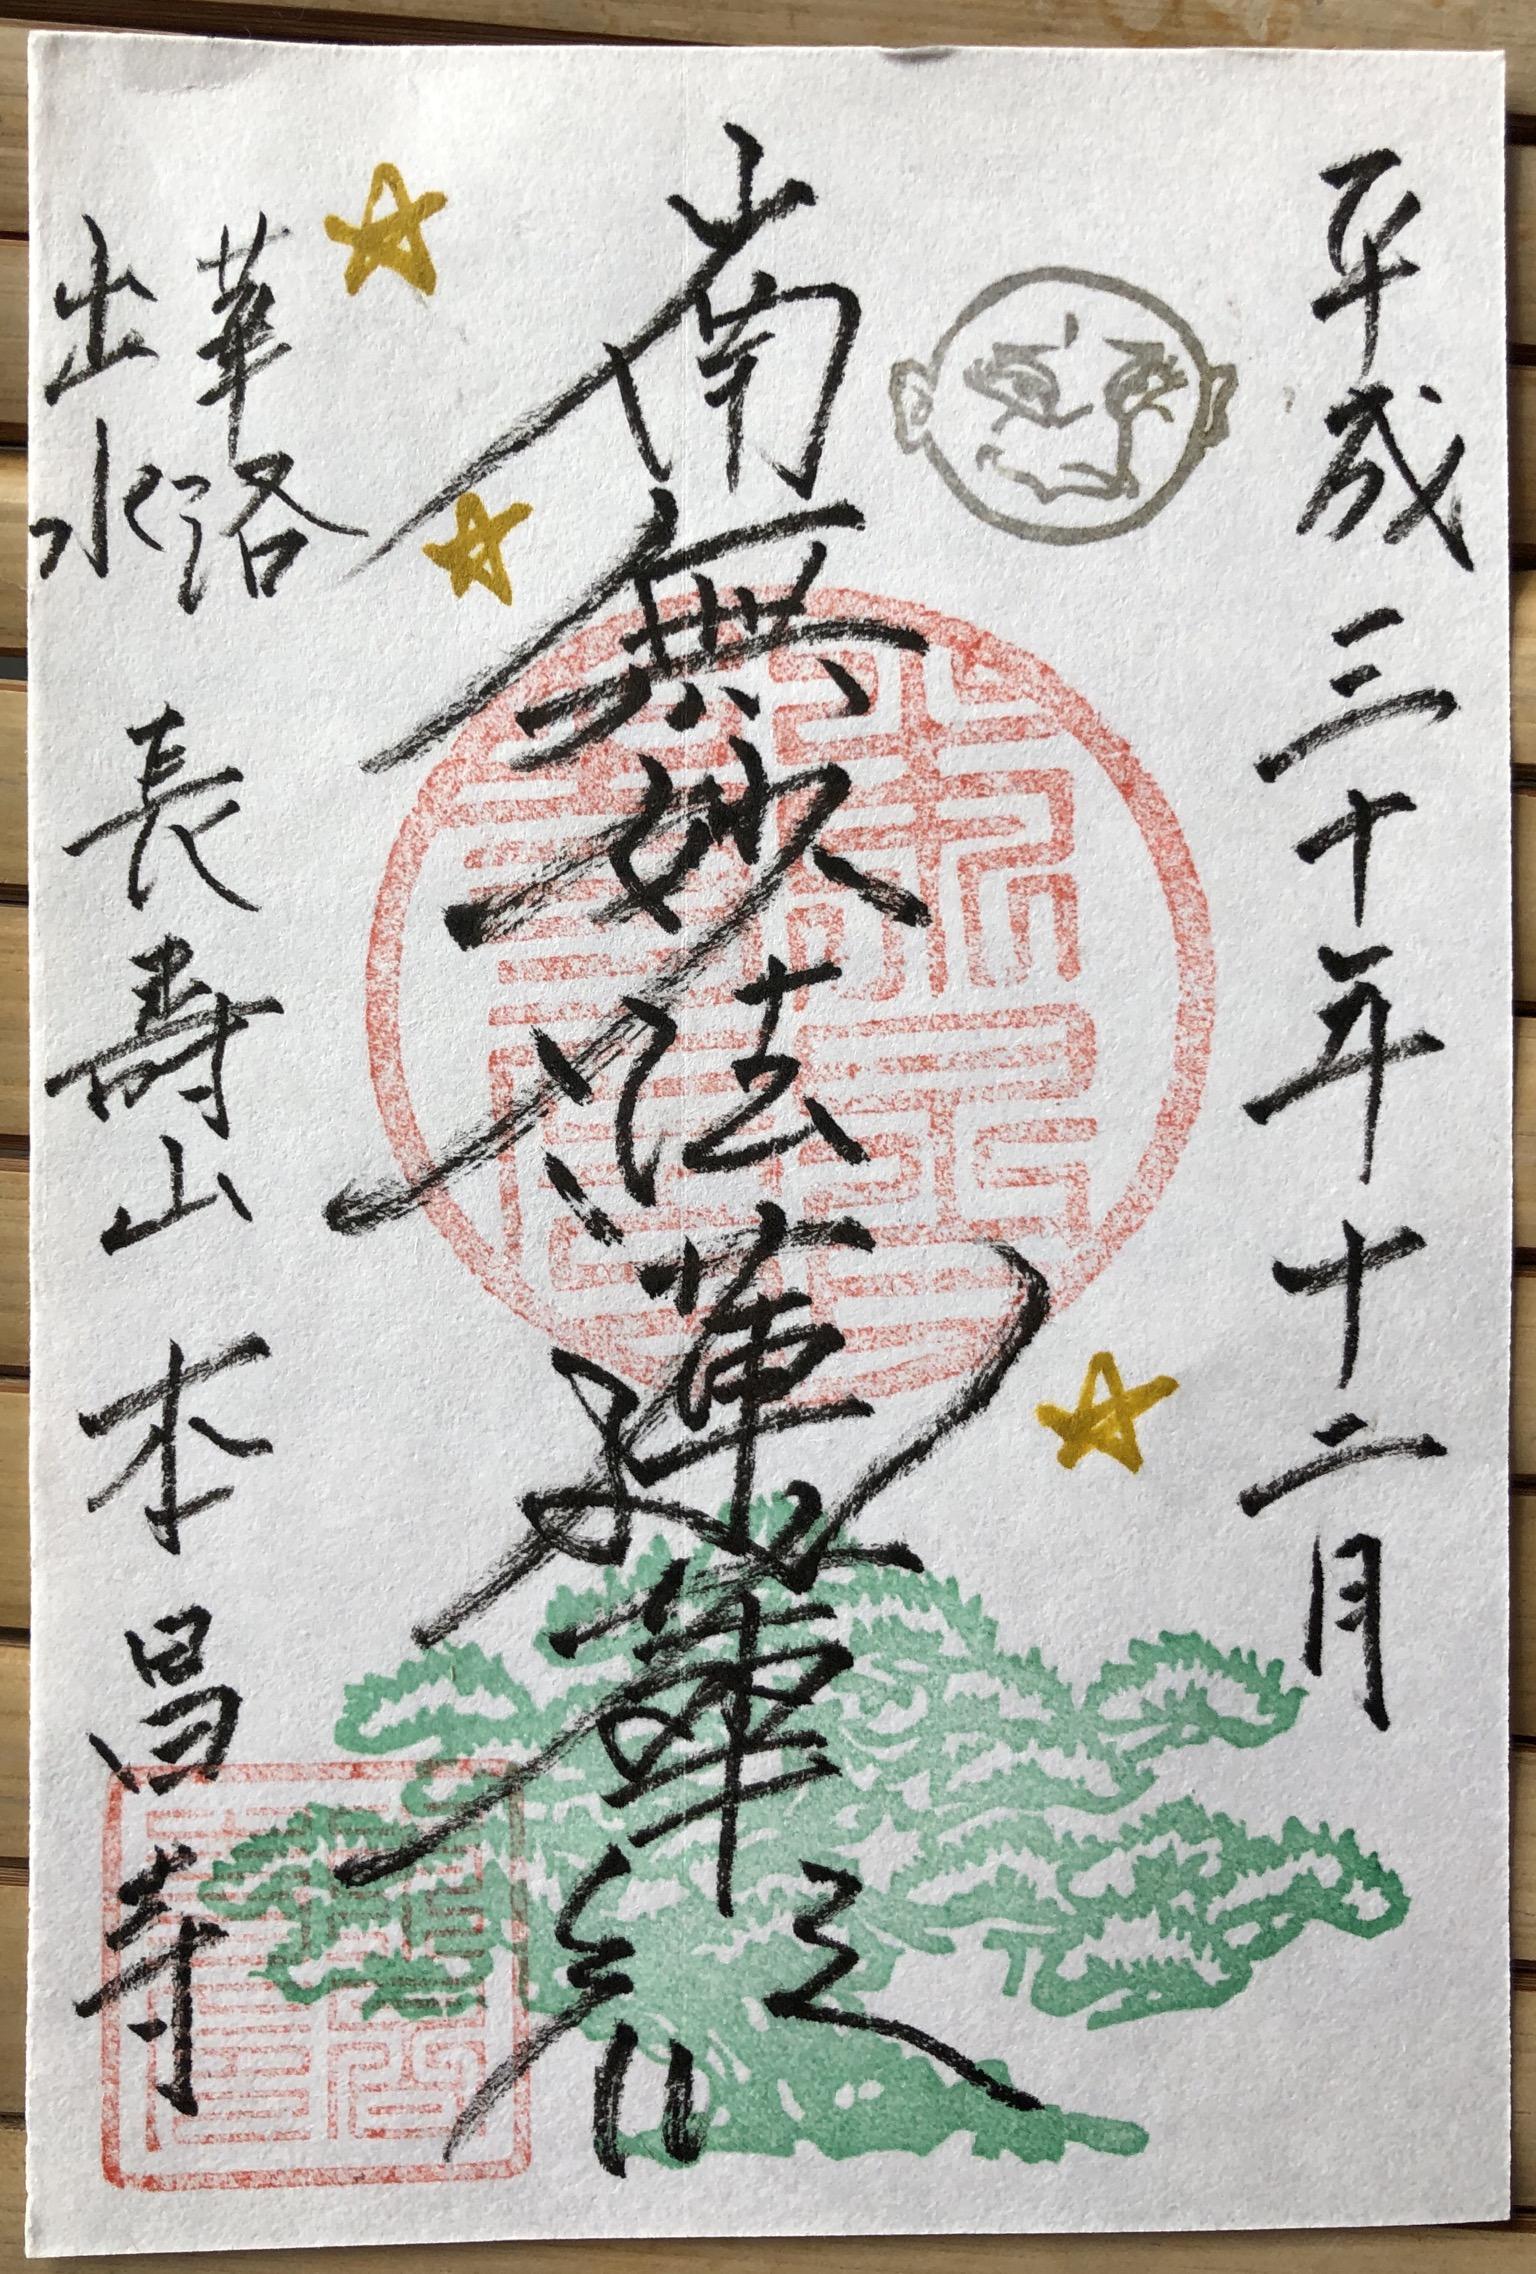 平成三十年十二月
南無妙法蓮華経
華洛
出水
長寿山 本昌寺